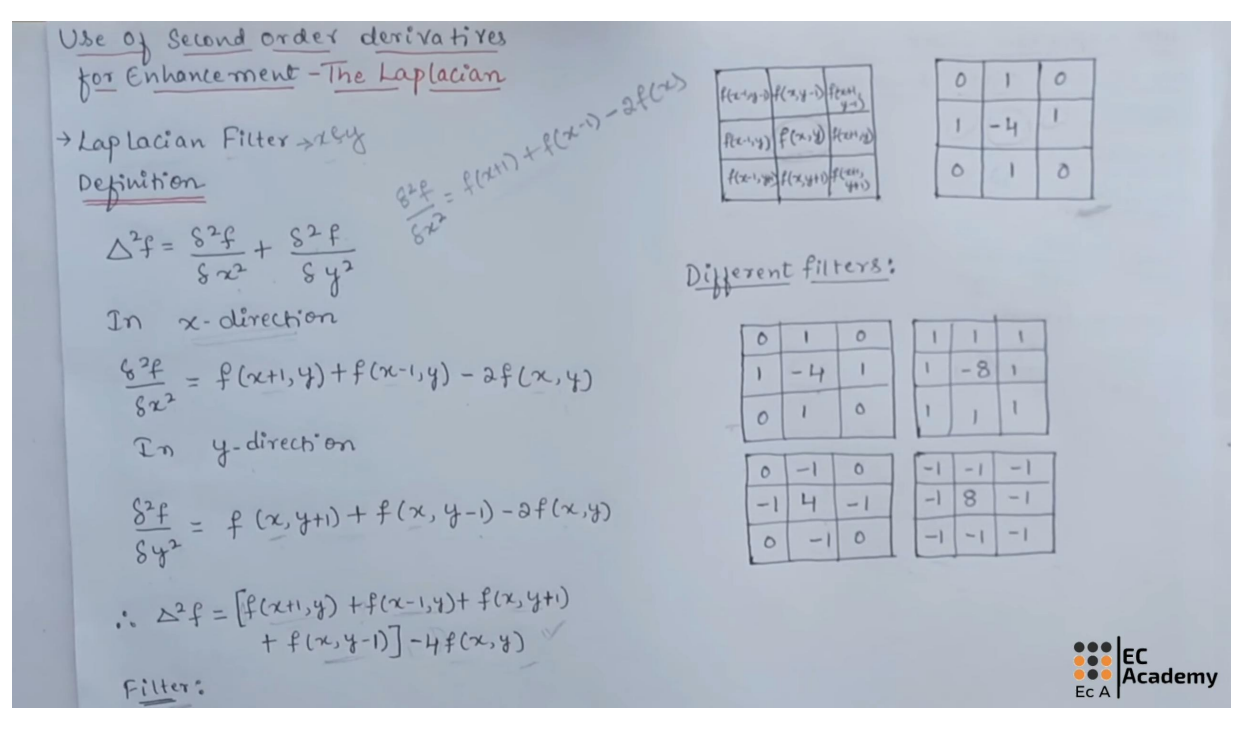 Use of Second order derivatives
for Enhancement - The Laplacian
→ Laplacian Filter → x & y
δ²f/δx² = f(x+1) + f(x-1) - 2f(x)
Definition
Δ²f = δ²f/δx² + δ²f/δy²
In x-direction
δ²f/δx² = f(x+1,y) + f(x-1,y) - 2f(x,y)
In y-direction
δ²f/δy² = f(x,y+1) + f(x,y-1) - 2f(x,y)
∴ Δ²f = [f(x+1,y) + f(x-1,y) + f(x,y+1)
+ f(x,y-1)] - 4f(x,y)
Filter:
f(x-1,y-1) f(x,y-1) f(x+1,y-1)
f(x-1,y) f(x,y) f(x+1,y)
f(x-1,y+1) f(x,y+1) f(x+1,y+1)
0 1 0
1 -4 1
0 1 0
Different filters:
0 1 0
1 -4 1
0 1 0
1 1 1
1 -8 1
1 1 1
0 -1 0
-1 4 -1
0 -1 0
-1 -1 -1
-1 8 -1
-1 -1 -1
EC
Academy
Ec A